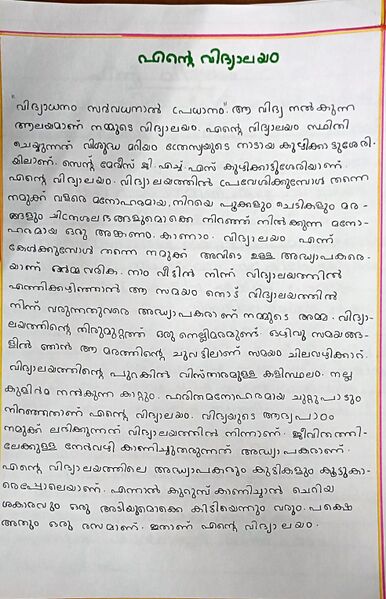 എന്റെ വിദ്യാലയം
"വിദ്യാധനം സർവ്വധനാൽ പ്രധാനം". ആ വിദ്യ നൽകുന്ന
ആലയമാണ് നമ്മുടെ വിദ്യാലയം. എന്റെ വിദ്യാലയം സ്ഥിതി
ചെയ്യുന്നത് വിശുദ്ധ മറിയം ത്രേസ്യയുടെ നാടായ കുഴിക്കാട്ടുശേരി-
യിലാണ്. സെന്റ് മേരീസ് ജി. എച്ച്. എസ് കുഴിക്കാട്ടുശേരിയാണ്
എന്റെ വിദ്യാലയം. വിദ്യാലയത്തിൽ പ്രവേശിക്കുമ്പോൾ തന്നെ
നമുക്ക് വളരെ മനോഹരമായ, നിറയെ പൂക്കളും ചെടികളും മര-
ങ്ങളും ചിത്രശലഭങ്ങളുമൊക്കെ നിറഞ്ഞ് നിൽക്കുന്ന മനോ-
ഹരമായ ഒരു അങ്കണം കാണാം. വിദ്യാലയം എന്ന്
കേൾക്കുമ്പോൾ തന്നെ നമുക്ക് അവിടെ ഉള്ള അദ്ധ്യാപകരെ-
യാണ് ഓർമ്മ വരിക. നാം വീട്ടിൽ നിന്ന് വിദ്യാലയത്തിൽ
എത്തിക്കഴിഞ്ഞാൽ ആ സമയം തൊട്ട് വിദ്യാലയത്തിൽ
നിന്ന് വരുന്നതുവരെ അദ്ധ്യാപകരാണ് നമ്മുടെ അമ്മ. വിദ്യാ-
ലയത്തിന്റെ തിരുമുറ്റത്ത് ഒരു നെല്ലിമരമുണ്ട്. ഒഴിവു സമയങ്ങ-
ളിൽ ഞാൻ ആ മരത്തിന്റെ ചുവട്ടിലാണ് സമയം ചിലവഴിക്കാറ്.
വിദ്യാലയത്തിന്റെ പുറകിൽ വിസ്തൃതമുള്ള കളിസ്ഥലം. നല്ല
കുളിർമ നൽകുന്ന കാറ്റും. ഹരിതമനോഹരമായ ചുറ്റുപാടും
നിറഞ്ഞതാണ് എന്റെ വിദ്യാലയം. വിദ്യയുടെ ആദ്യപാഠം
നമുക്ക് ലഭിക്കുന്നത് വിദ്യാലയത്തിൽ നിന്നാണ്. ജീവിതത്തി-
ലേക്കുള്ള നേർവഴി കാണിച്ചുതരുന്നത് അദ്ധ്യാപകരാണ്.
എന്റെ വിദ്യാലയത്തിലെ അദ്ധ്യാപകരും കുട്ടികളും കൂട്ടുകാ-
രെപ്പോലെയാണ്. എന്നാൽ കുറുമ്പ് കാണിച്ചാൽ ചെറിയ
ശകാരവും ഒരു അടിയുമൊക്കെ കിട്ടിയെന്നും വരും. പക്ഷെ
അതും ഒരു രസമാണ്. ഇതാണ് എന്റെ വിദ്യാലയം.